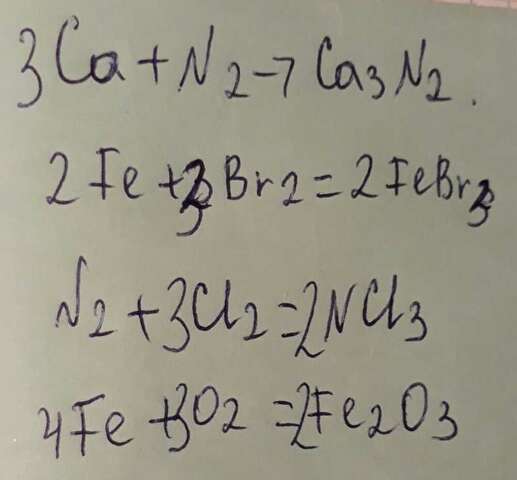 3Ca + N2 → Ca3N2.
2Fe + 3Br2 = 2FeBr3
N2 + 3Cl2 = 2NCl3
4Fe + 3O2 = 2Fe2O3